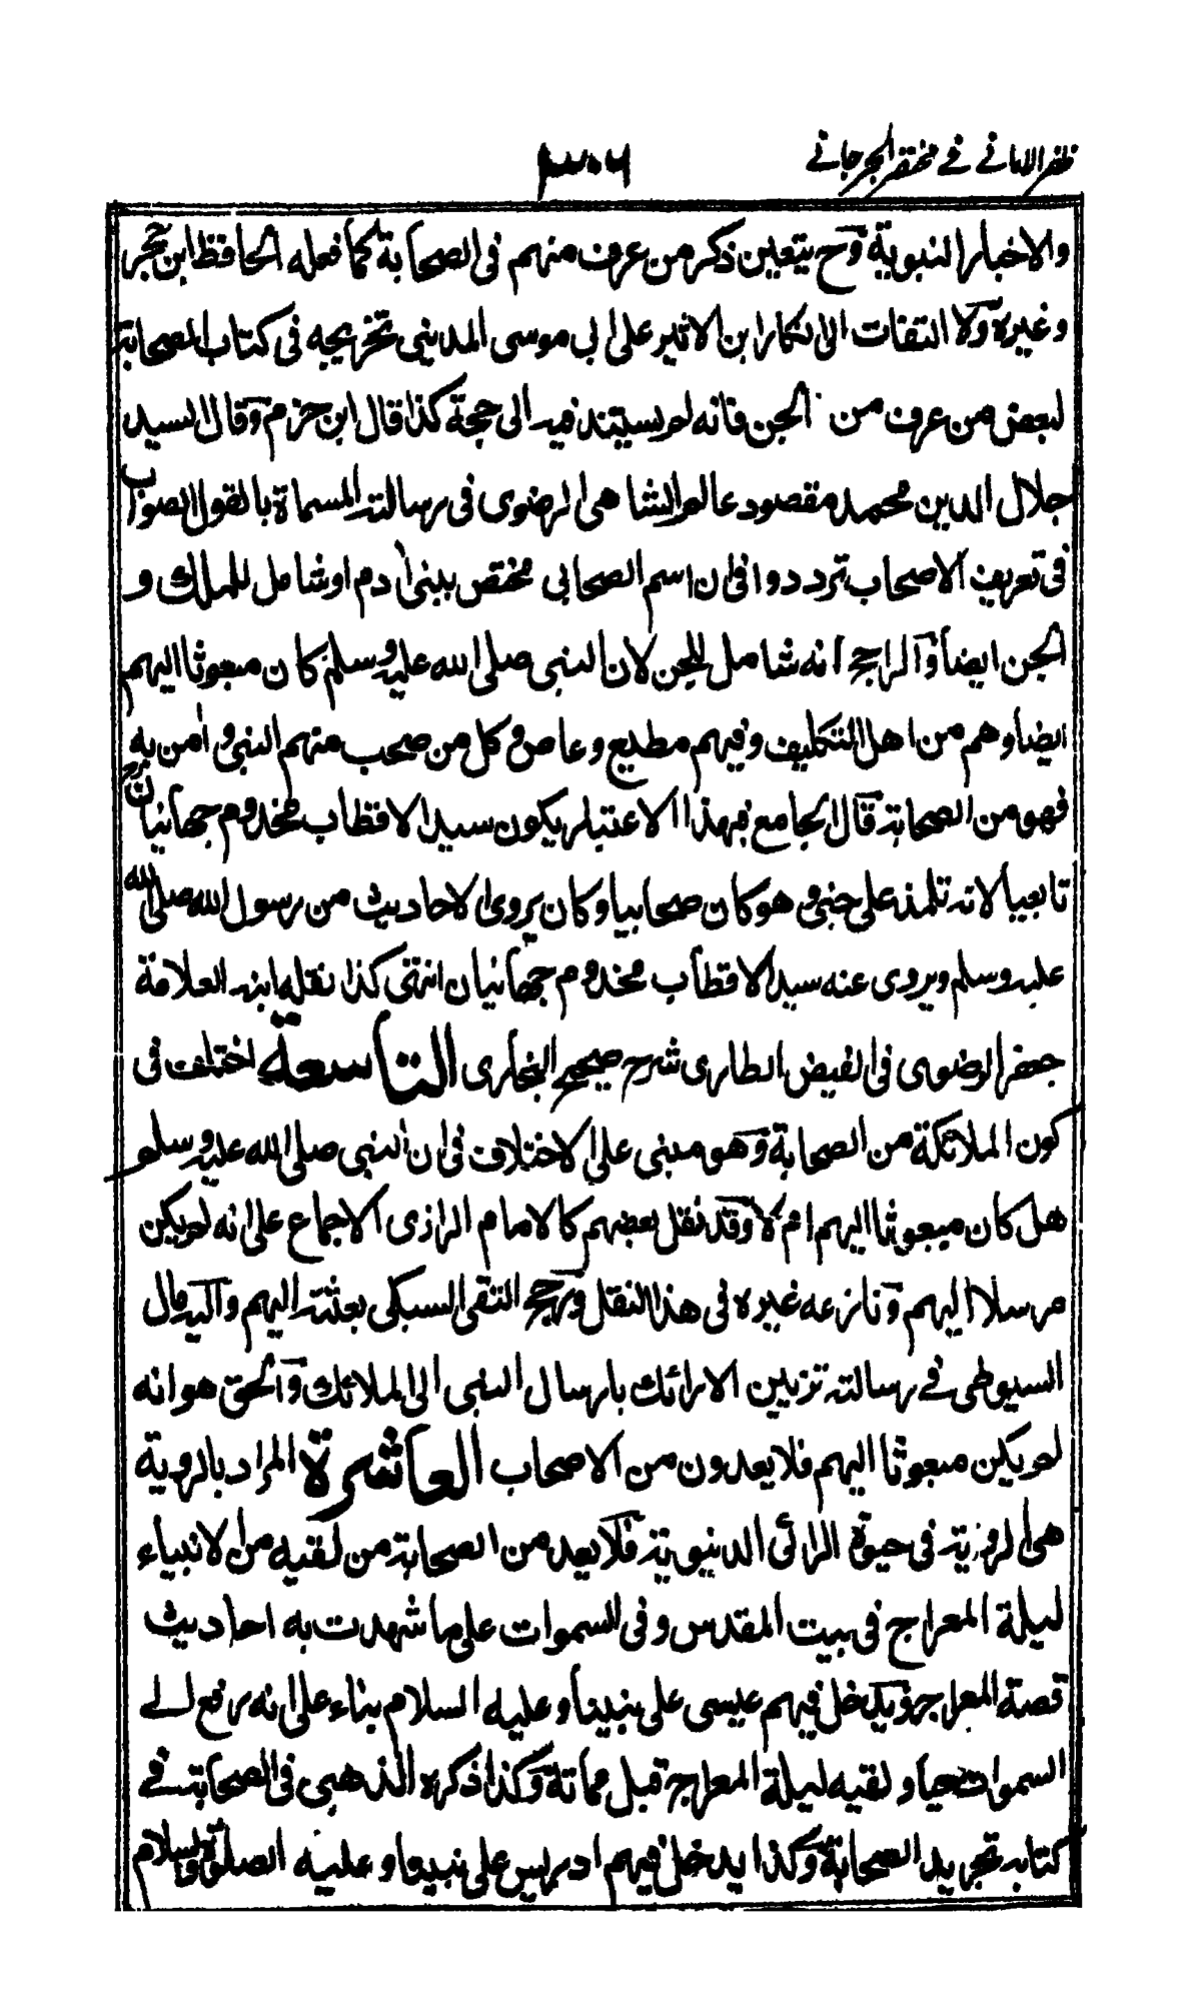 ظفر الامانی فی مختصر الجرجانی ٣٠٦
والاخبار النبویة وح یتعین ذکر من عرف منهم فی الصحابة کما فعله الحافظ ابن حجر
وغیره ولا التفات الی انکار ابن الاثیر علی ابی موسی المدینی تخریجه فی کتاب الصحابة
لبعض من عرف من الجن فانه لم یستند فیه الی حجة کذا قال ابن حزم وقال السید
جلال الدین محمد مقصود عالم الشاهی الرضوی فی رسالته المسماة بالقول الصواب
فی تعریف الاصحاب ترددوا فی ان اسم الصحابی مختص ببنی اٰدم او شامل للملک و
الجن ایضا والراجح انه شامل للجن لان النبی صلی الله علیه وسلم کان مبعوثا الیهم
ایضا وهم من اهل التکلیف وفیهم مطیع وعاص وکل من صحب منهم النبی واٰمن به
فهو من الصحابة قال الجامع فبهذا الاعتبار یکون سید الاقطاب مخدوم جهانیان
تابعیا لانه تلمذ علی جنی وهو کان صحابیا وکان یروی الاحادیث من رسول الله صلی الله
علیه وسلم ویروی عنه سید الاقطاب مخدوم جهانیان انتهی کذا نقله ابنه العلامة
جعفر الرضوی فی الفیض الطاری شرح صحیح البخاری التاسعة اختلف فی
کون الملائکة من الصحابة وهو مبنی علی الاختلاف فی ان النبی صلی الله علیه وسلم
هل کان مبعوثا الیهم ام لا وقد نقل بعضهم کالامام الرازی الاجماع علی انه لم یکن
مرسلا الیهم ونازعه غیره فی هذا النقل ورجح التقی السبکی بعثته الیهم والیه مال
السیوطی فی رسالته تزیین الارائک بارسال النبی الی الملائک والحق هو انه
لم یکن مبعوثا الیهم فلا یعدون من الاصحاب العاشرة المراد بالرویة
هی الرویة فی حیوة الرائی الدنیویة فلا یعد من الصحابة من لقیه من الانبیاء
لیلة المعراج فی بیت المقدس وفی السموات علی ما شهدت به احادیث
قصة المعراج ویدخل فیهم عیسی علی نبینا وعلیه السلام بناء علی انه رفع الی
السموات حیا ولقیه لیلة المعراج قبل مماتة وکذا ذکره الذهبی فی الصحابة فی
کتابه تجرید الصحابة وکذا یدخل فیهم ادریس علی نبینا وعلیه الصلوة والسلام